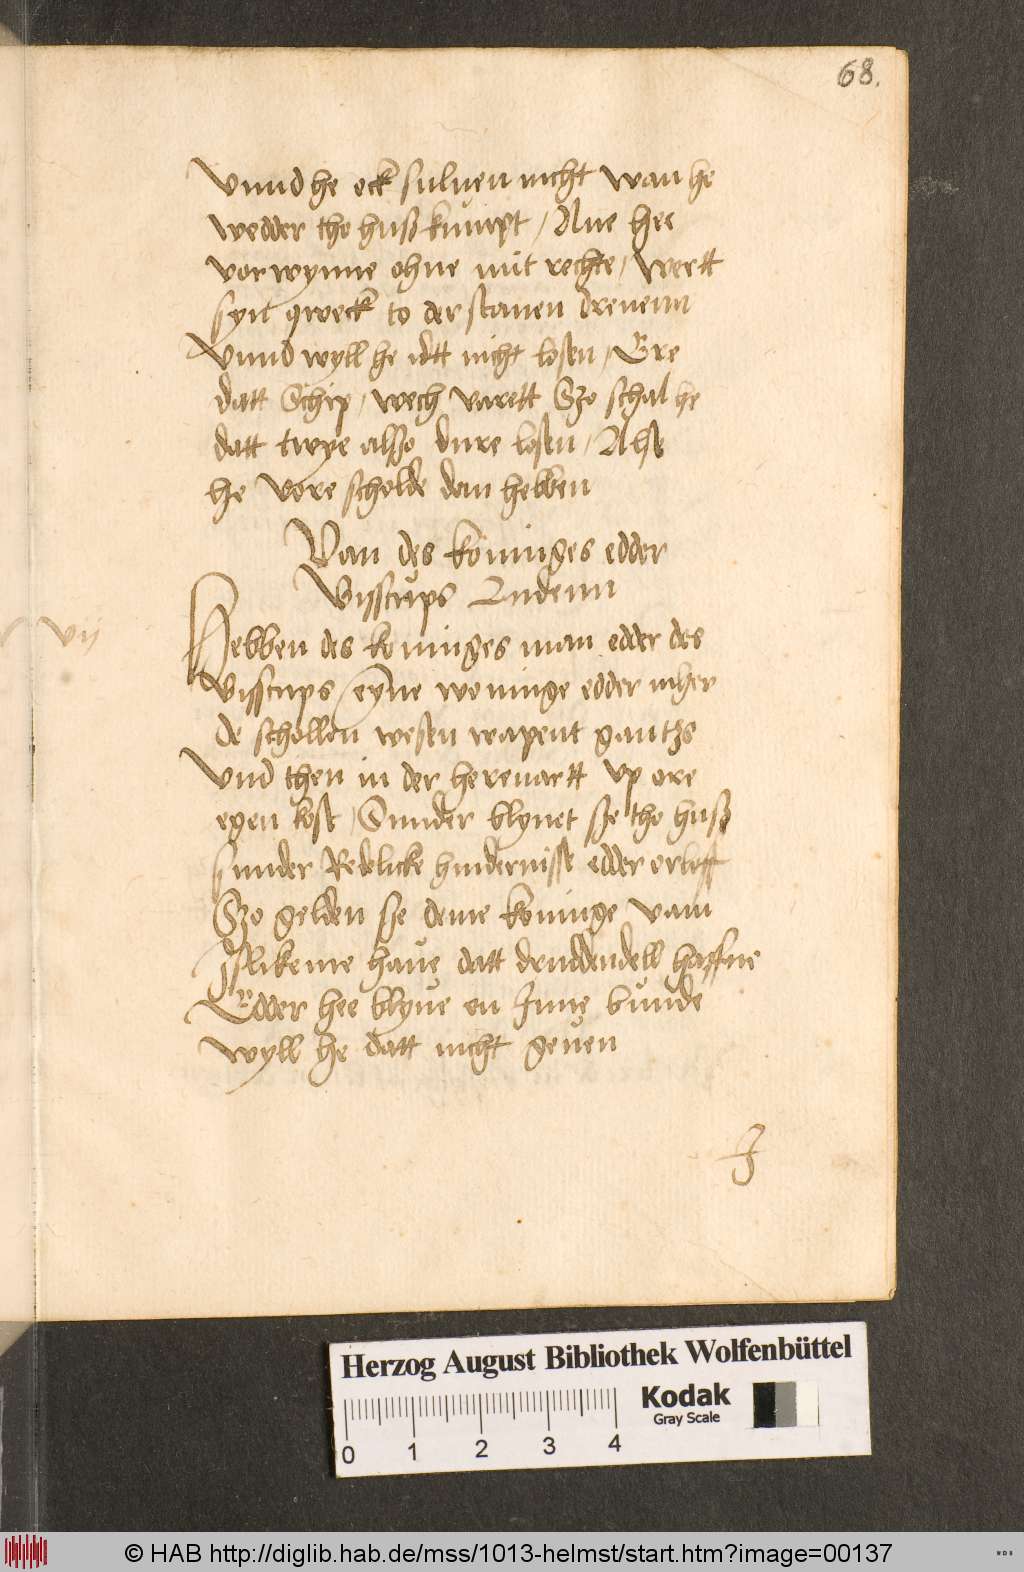 68.
Vnnd he eck suluen nicht wan he
wedder tho huß kumpt / Ane hee
vorwynne ohne mit rechte / wertt
synt qweck to der stauen dreuenn
Vnnd wyll he idtt nicht losen / Ere
datt Schip / wech varett Szo schal he
datt twye alßo dure losen / Alse
he vore scholde dan hebben
Van des koninges edder
Visscups Ludenn
vij
Hebben des koninges man edder des
Visscups / eyne woninge edder mher
de schollen wesen wapent gantzs
Vnd then in der hereuartt vp ore
egen kost / Sunder blyuet sse tho huß
sunder Redelicke hindernisse edder orloff
Szo gelden sse deme koninge vam
Islikeme haue datt druddendell haffne
Edder hee blyue en Inne bunde
wyll he datt nicht geuen
J
Herzog August Bibliothek Wolfenbüttel
Kodak
Gray Scale
0 1 2 3 4
© HAB http://diglib.hab.de/mss/1013-helmst/start.htm?image=00137